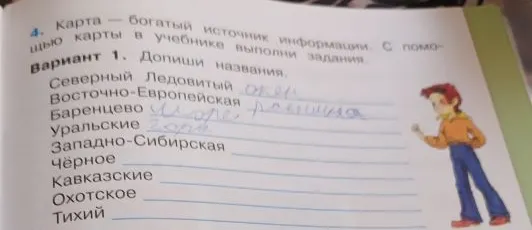 4. Карта — богатый источник информации. С помо-
щью карты в учебнике выполни задания.
Вариант 1. Допиши названия.
Северный Ледовитый океан
Восточно-Европейская равнина
Баренцево море
Уральские горы
Западно-Сибирская
Чёрное
Кавказские
Охотское
Тихий